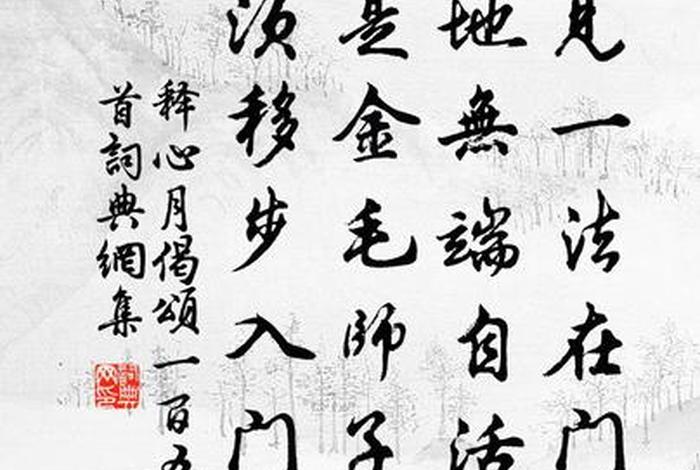 見一法在門
地無端自活
是金毛師子
須移步入門
释心月偈頌一百五
首詞典網集